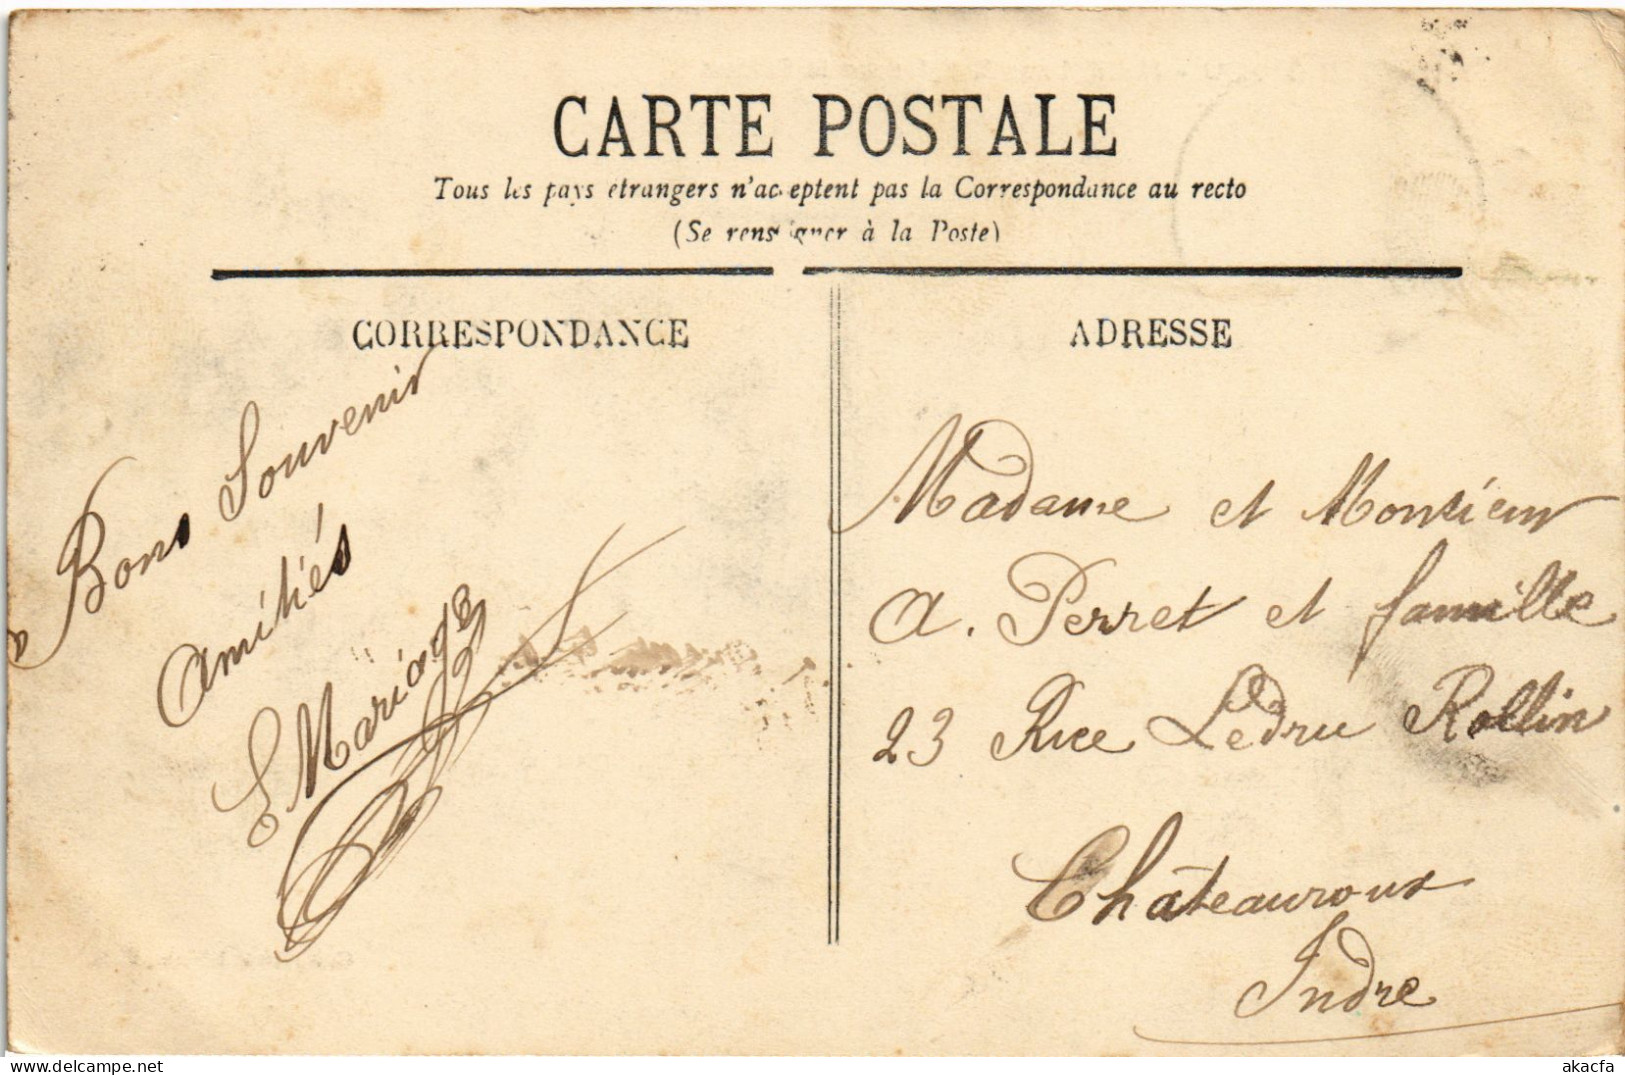 CARTE POSTALE
Tous les pays étrangers n'acceptent pas la Correspondance au recto
(Se renseigner à la Poste)
CORRESPONDANCE
Bons Souvenir
Amitiés
ADRESSE
Madame et Monsieur
A. Perret et famille
23 Rue Ledru Rollin
Châteauroux
Indre
www.delcampe.net
akacfa